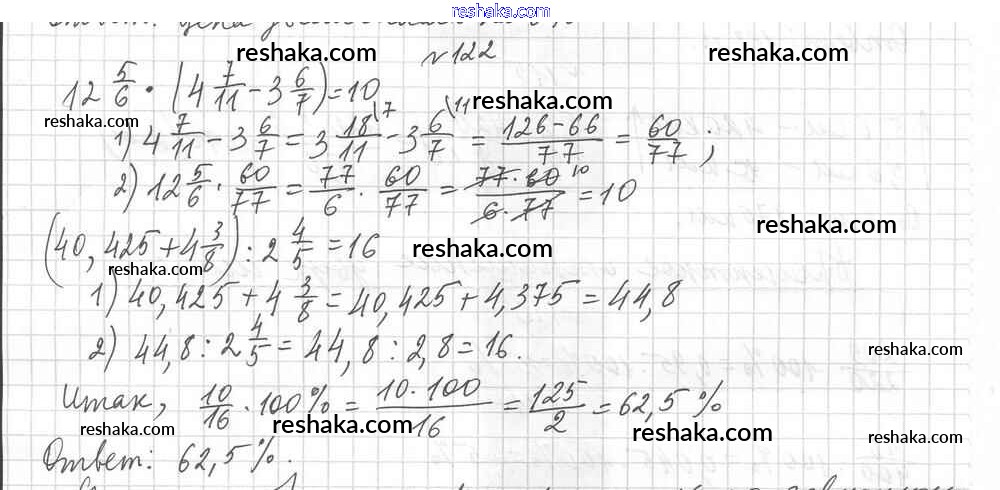 www.gdz.com
Ответ: цена
reshaka.com
reshaka.com
№122
12 5/6 · (4 7/11 - 3 6/7) = 10
reshaka.com
reshaka.com
1) 4 7/11 - 3 6/7 = 3 18/11 \7 - 3 6/7 \11 = (126-66)/77 = 60/77 ;
2) 12 5/6 · 60/77 = 77/6 · 60/77 = (77·60 10)/(6·77) = 10
reshaka.com
(40,425 + 4 3/8) : 2 4/5 = 16
reshaka.com
reshaka.com
1) 40,425 + 4 3/8 = 40,425 + 4,375 = 44,8
2) 44,8 : 2 4/5 = 44,8 : 2,8 = 16.
reshaka.com
reshaka.com
Итак, 10/16 · 100% = (10·100)/16 = 125/2 = 62,5 %
reshaka.com
reshaka.com
reshaka.com
reshaka.com
Ответ: 62,5 %.